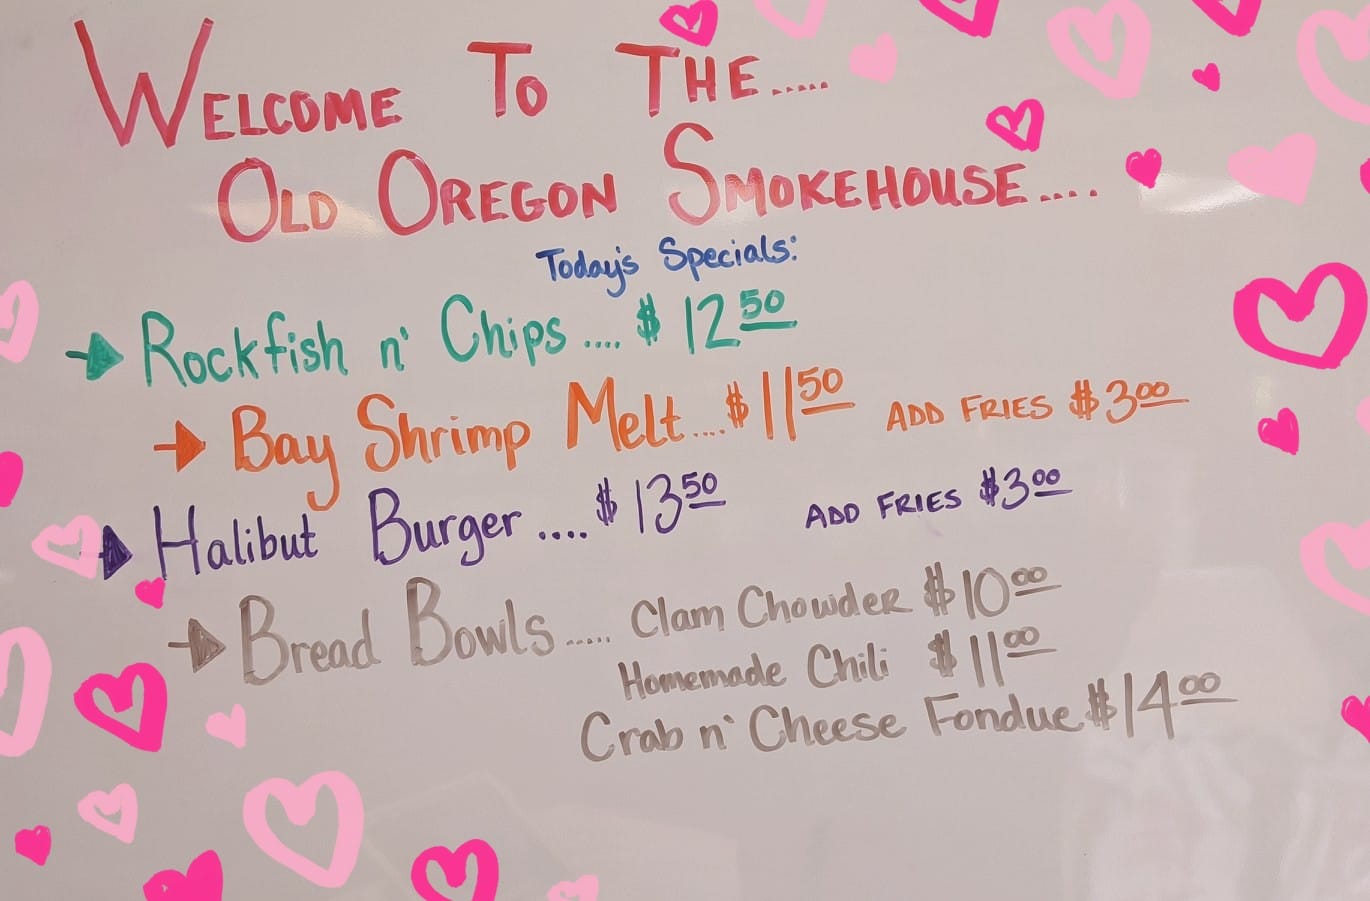 WELCOME TO THE.....
OLD OREGON SMOKEHOUSE....
Today's Specials:
Rockfish n' Chips .... $ 12 50
Bay Shrimp Melt....$ 11 50 ADD FRIES $3 00
Halibut Burger .... $ 13 50 ADD FRIES $3 00
Bread Bowls ..... Clam Chowder $10 00
Homemade Chili $11 00
Crab n' Cheese Fondue $14 00